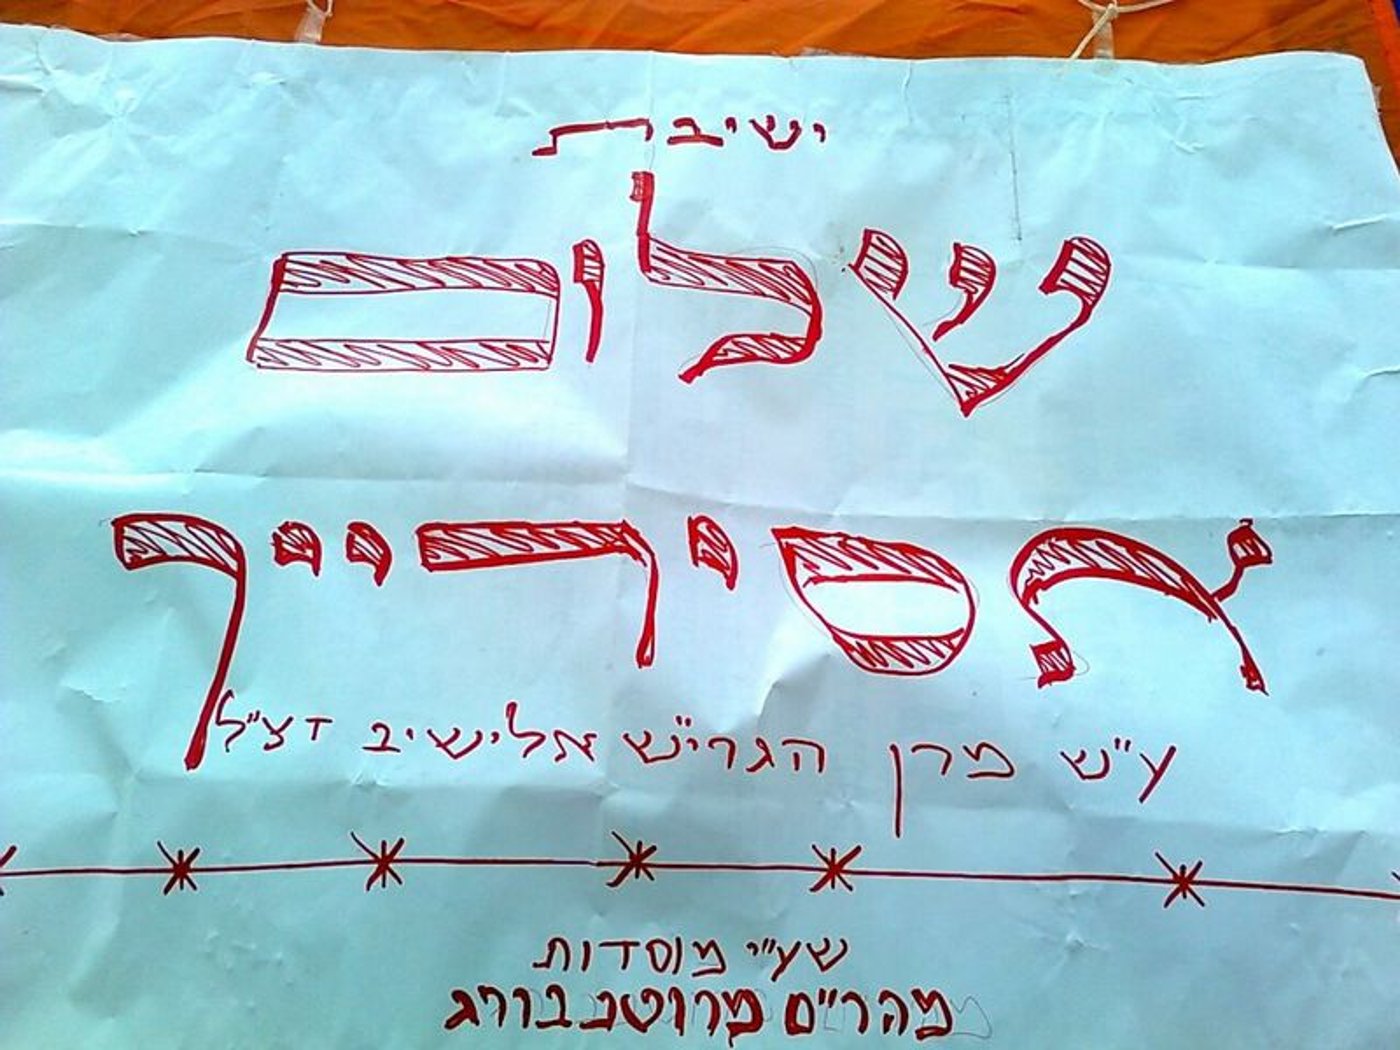 ישיבת
שלום
אסירייך
ע"ש מרן הגרי"ש אלישיב זצ"ל
שע"י מוסדות
מהר"ם מרוטנבורג